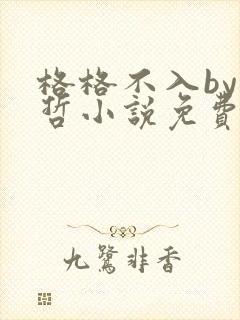 格格不入by
哲小説免費
九鷺非香